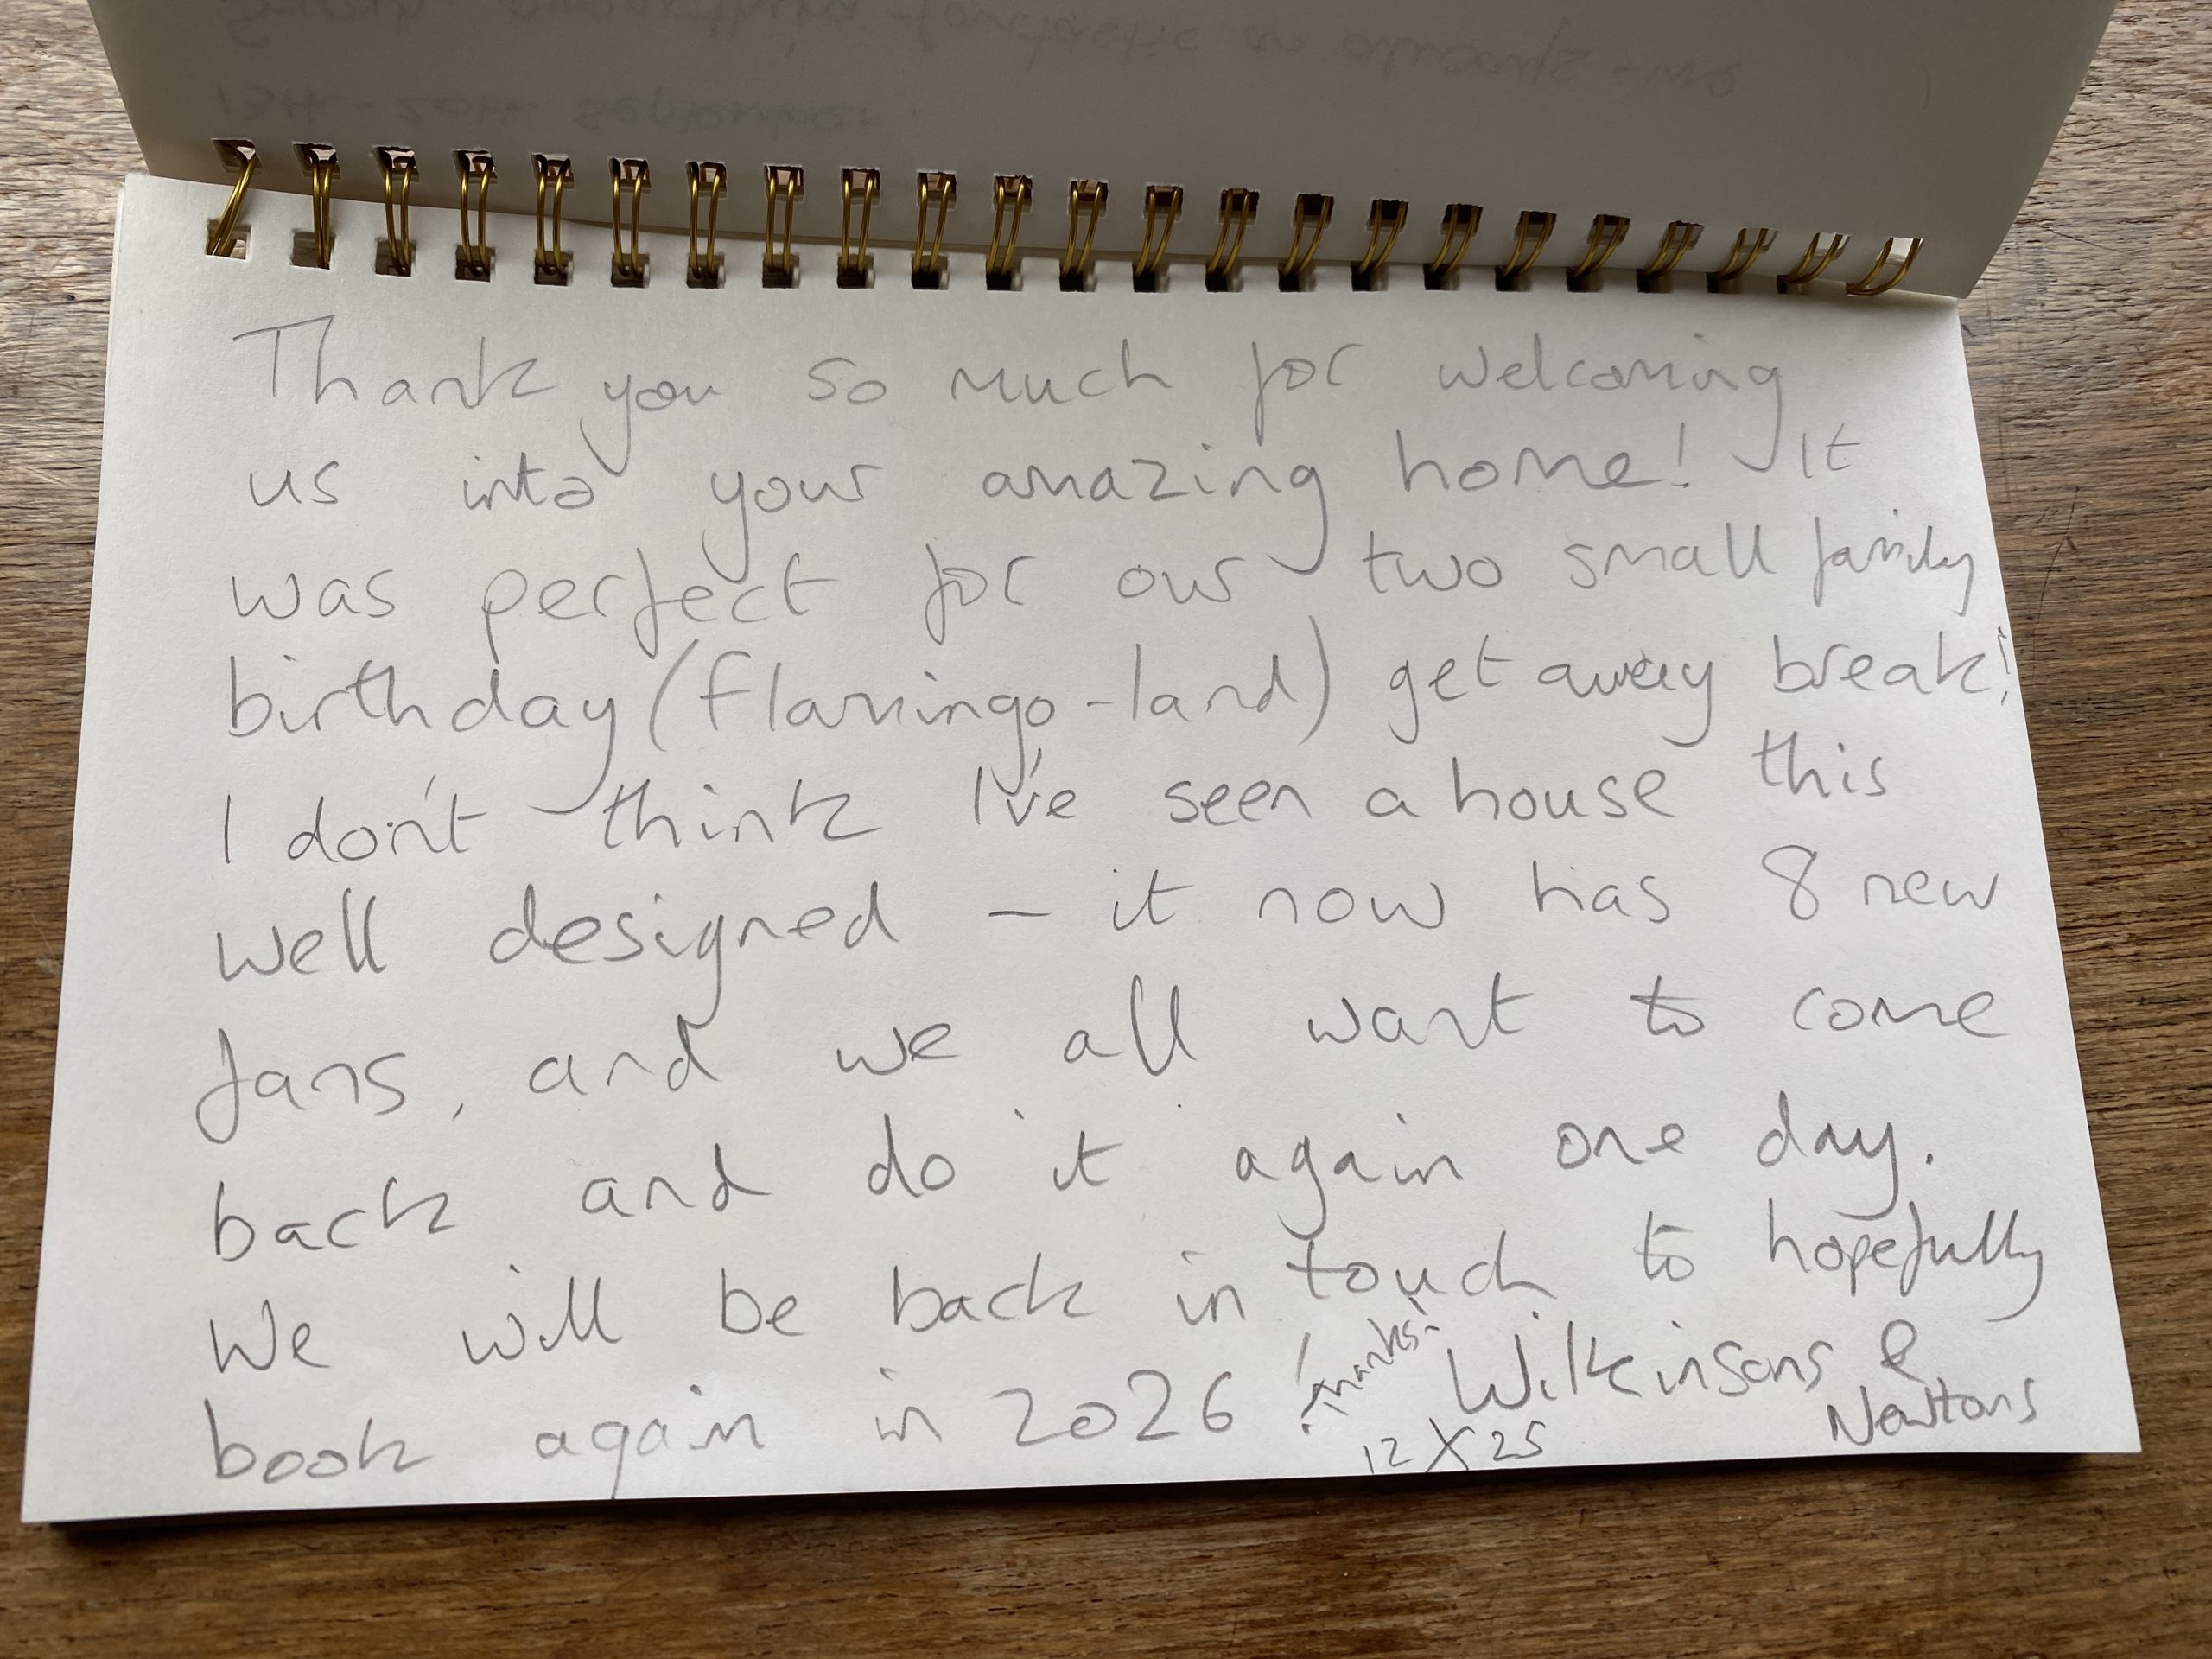 Thank you so much for welcoming
us into your amazing home! It
was perfect for our two small family
birthday (flamingo-land) get away break!
I don't think I've seen a house this
well designed – it now has 8 new
fans, and we all want to come
back and do it again one day.
We will be back in touch to hopefully
book again in 2026! Thanks! Wilkinsons &
Newtons
12 X 25
13th - 20th September